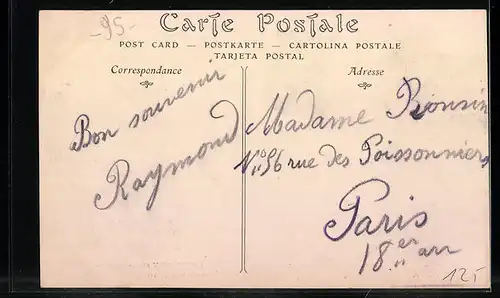 - 95-
Carte Postale
POST CARD — POSTKARTE — CARTOLINA POSTALE
TARJETA POSTAL
Correspondance
Adresse
Bon souvenir
Raymond
Madame
N° 56 rue des Poissonniers
Paris
18er arr